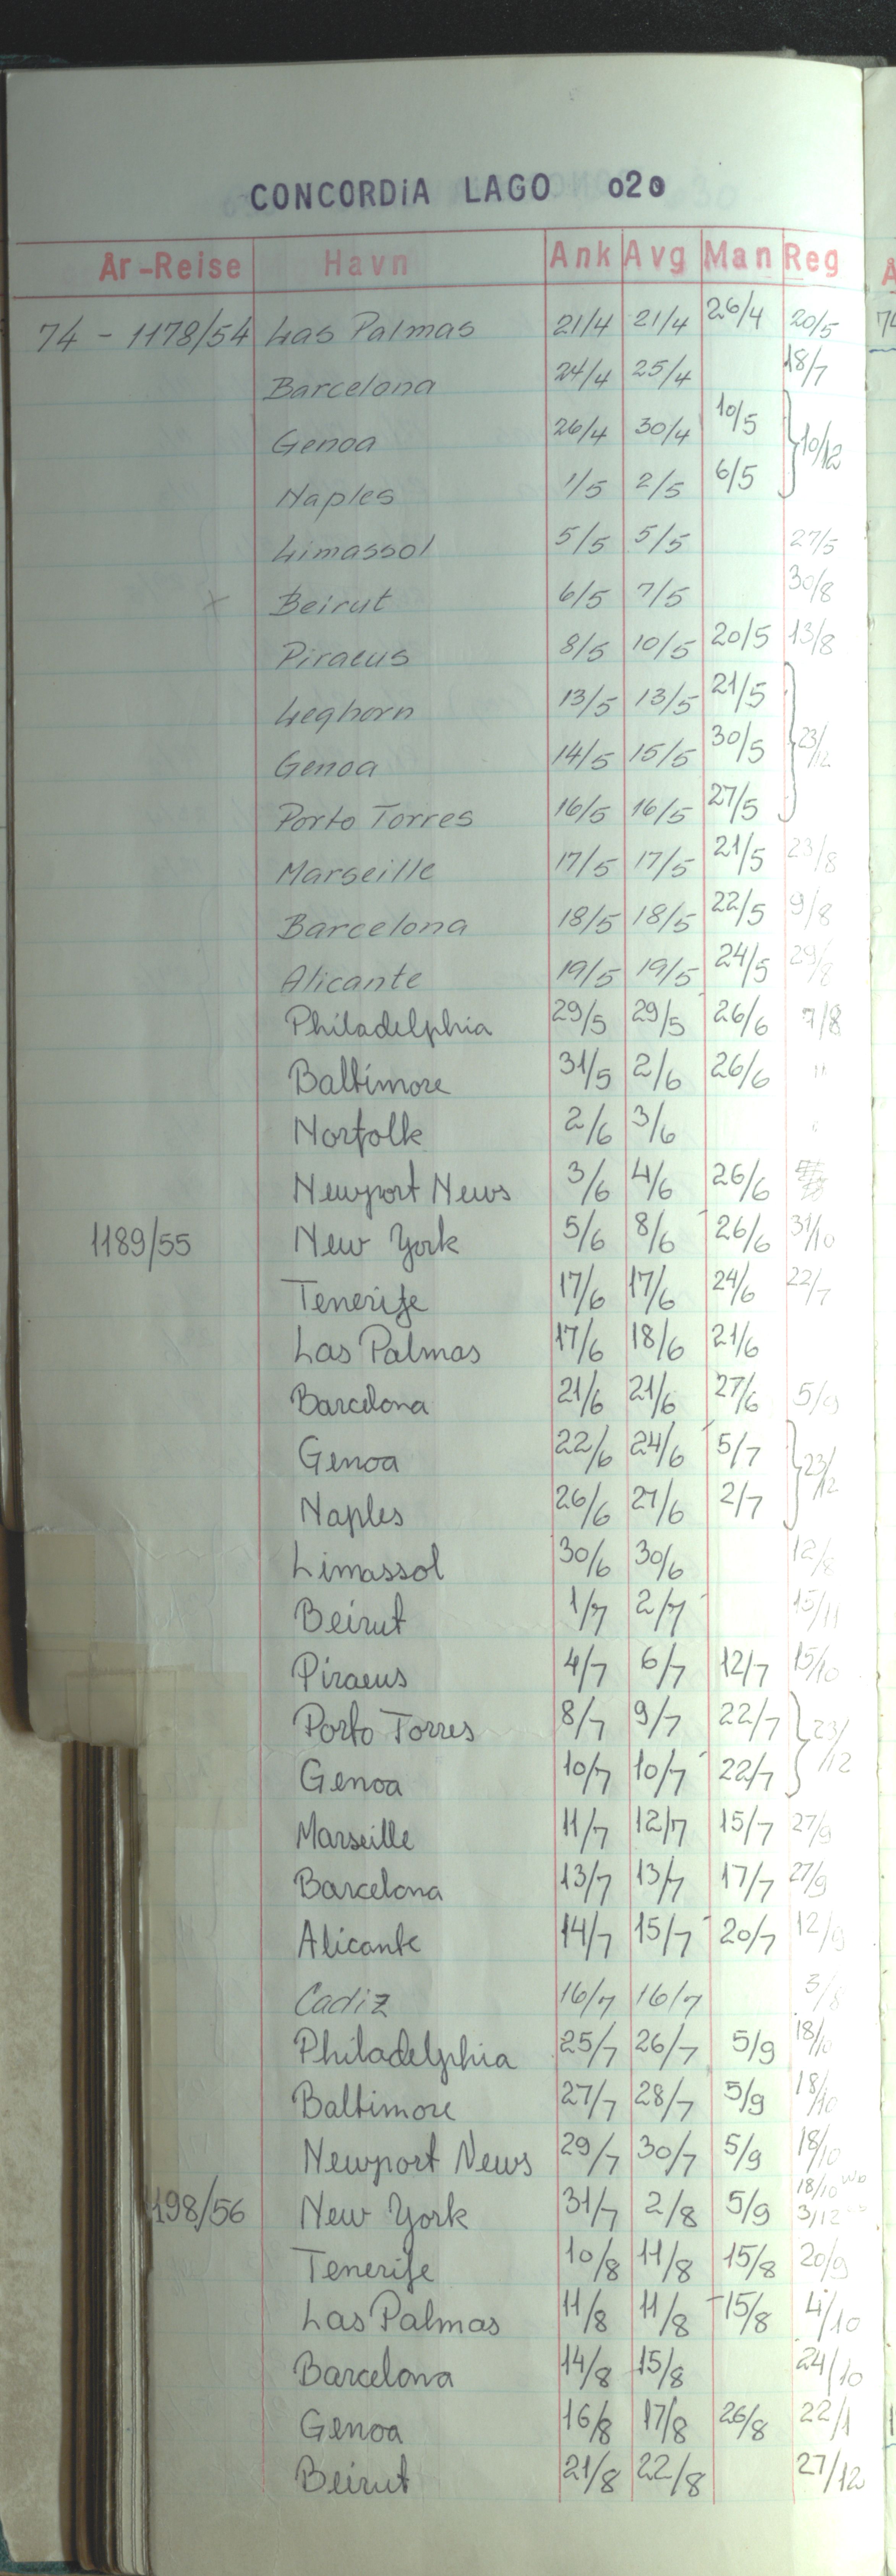 CONCORDiA LAGO 020
År-Reise Havn Ank Avg Man Reg
74 - 1178/54 Las Palmas 21/4 21/4 26/4 20/5
Barcelona 24/4 25/4 18/7
Genoa 26/4 30/4 10/5 } 10/12
Naples 1/5 2/5 6/5
Limassol 5/5 5/5 27/5
x Beirut 6/5 7/5 30/8
Piraeus 8/5 10/5 20/5 13/8
Leghorn 13/5 13/5 21/5
Genoa 14/5 15/5 30/5 } 23/12
Porto Torres 16/5 16/5 27/5
Marseille 17/5 17/5 21/5 23/8
Barcelona 18/5 18/5 22/5 9/8
Alicante 19/5 19/5 24/5 29/8
Philadelphia 29/5 29/5 26/6 7/8
Baltimore 31/5 2/6 26/6 "
Norfolk 2/6 3/6
Newport News 3/6 4/6 26/6
1189/55 New York 5/6 8/6 26/6 31/10
Tenerife 17/6 17/6 24/6 22/7
Las Palmas 17/6 18/6 21/6
Barcelona 21/6 21/6 27/6 5/9
Genoa 22/6 24/6 5/7 } 23/12
Naples 26/6 27/6 2/7
Limassol 30/6 30/6 12/8
Beirut 1/7 2/7 15/11
Piraeus 4/7 6/7 12/7 15/10
Porto Torres 8/7 9/7 22/7 } 23/12
Genoa 10/7 10/7 22/7
Marseille 11/7 12/7 15/7 27/9
Barcelona 13/7 13/7 17/7 27/9
Alicante 14/7 15/7 20/7 12/9
Cadiz 16/7 16/7 3/8
Philadelphia 25/7 26/7 5/9 18/10
Baltimore 27/7 28/7 5/9 18/10
Newport News 29/7 30/7 5/9 18/10
198/56 New York 31/7 2/8 5/9 18/10 3/12
Tenerife 10/8 11/8 15/8 20/9
Las Palmas 11/8 11/8 15/8 4/10
Barcelona 14/8 15/8 24/10
Genoa 16/8 17/8 26/8 22/1
Beirut 21/8 22/8 27/12